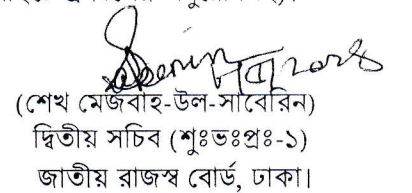 (শেখ মেজবাহ-উল-সাবেরিন)
দ্বিতীয় সচিব (শুঃভঃপ্রঃ-১)
জাতীয় রাজস্ব বোর্ড, ঢাকা।